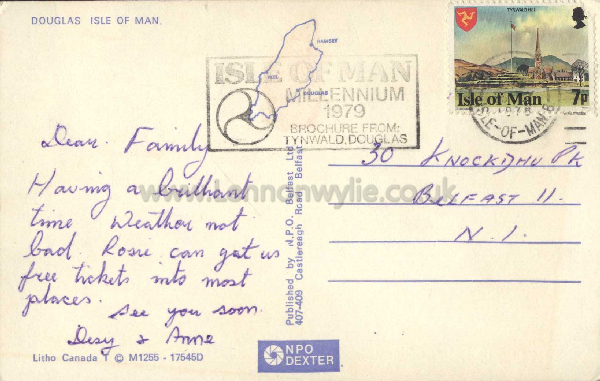 DOUGLAS ISLE OF MAN.
RAMSEY
PEEL
DOUGLAS
ISLE OF MAN
MILLENNIUM
1979
BROCHURE FROM:
TYNWALD, DOUGLAS
TYNWALD HILL
Isle of Man 7p
1978
ISLE-OF-MAN
Dear Family
Having a brilliant
time Weather not
bad. Rosie can get us
free tickets into most
places.
See you soon.
Desy & Anne
30 KNOCKDHU PK
BELFAST 11.
N. I.
www.lennonwylie.co.uk
Published by N.P.O. Belfast Ltd
407-409 Castlereagh Road, Belfast
Litho Canada © M1255 - 17545D
NPO
DEXTER